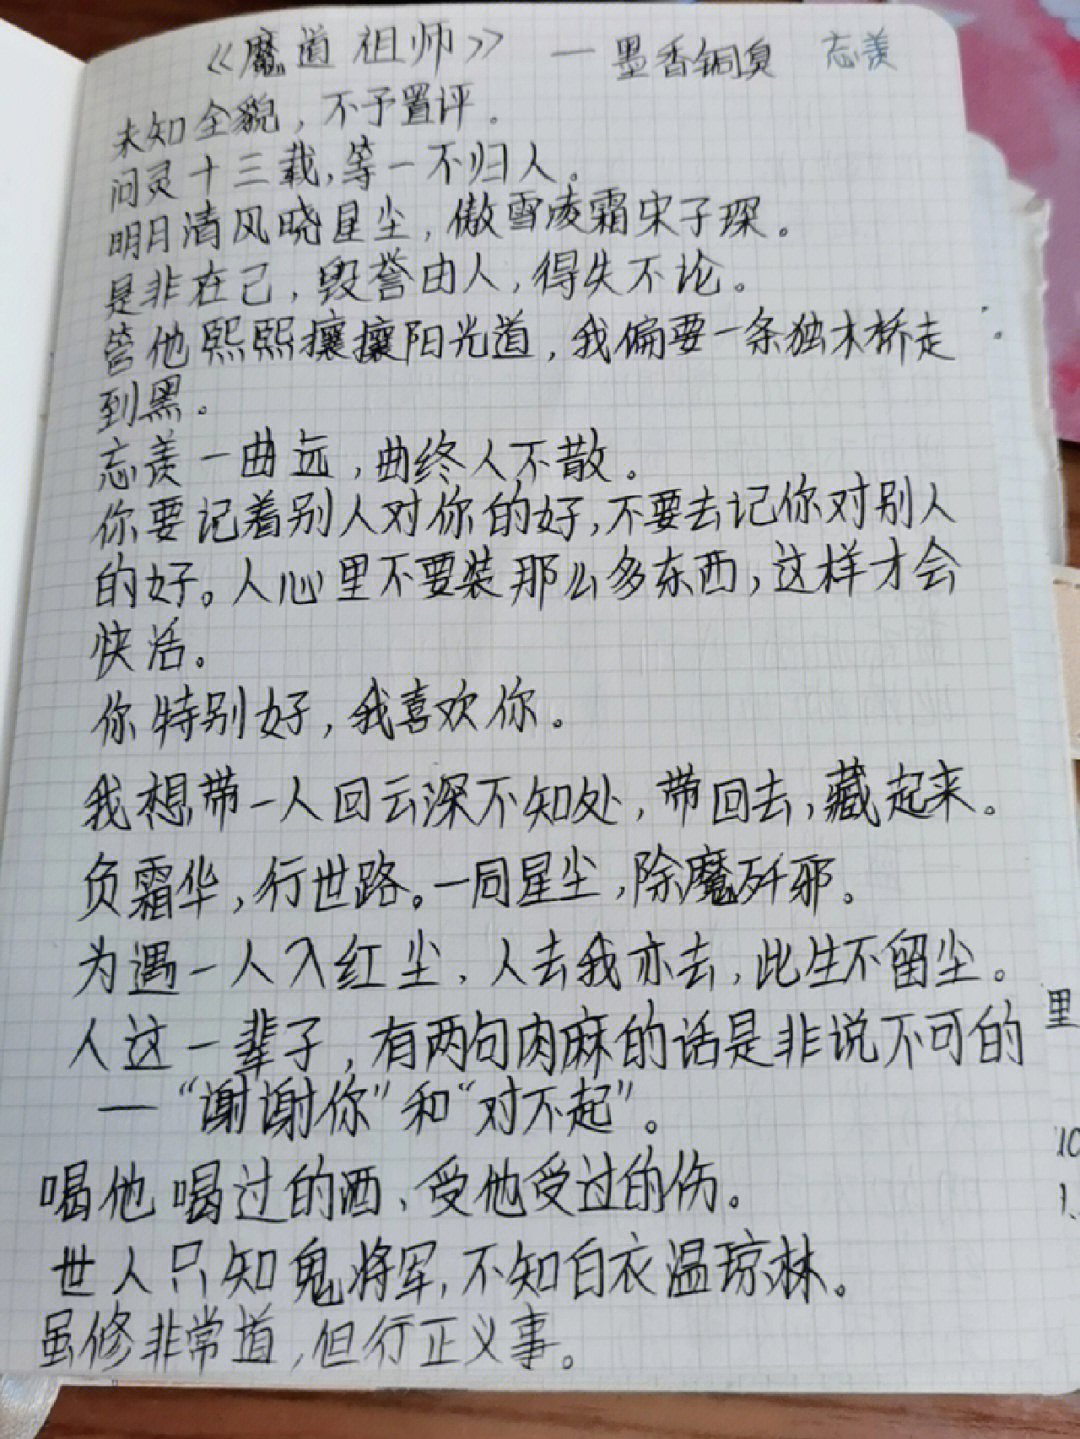 《魔道祖师》 — 墨香铜臭 忘羡
未知全貌，不予置评。
问灵十三载，等一不归人。
明月清风晓星尘，傲雪凌霜宋子琛。
是非在己，毁誉由人，得失不论。
管他熙熙攘攘阳光道，我偏要一条独木桥走
到黑。
忘羡一曲远，曲终人不散。
你要记着别人对你的好，不要去记你对别人
的好。人心里不要装那么多东西，这样才会
快活。
你特别好，我喜欢你。
我想带一人回云深不知处，带回去，藏起来。
负霜华，行世路。一同星尘，除魔歼邪。
为遇一人入红尘，人去我亦去，此生不留尘。
人这一辈子，有两句肉麻的话是非说不可的
—“谢谢你”和“对不起”。
喝他喝过的酒、受他受过的伤。
世人只知鬼将军，不知白衣温琼林。
虽修非常道，但行正义事。
里
10
1.